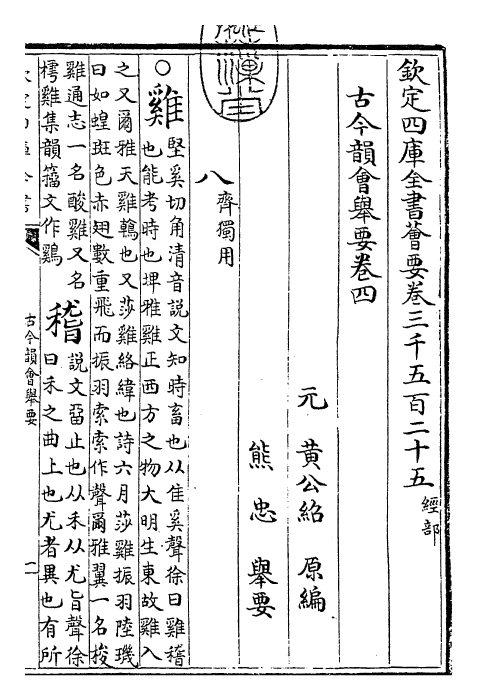 欽定四庫全書薈要卷三千五百二十五 經部
古今韻會舉要卷四
元 黃公紹 原編
熊忠 舉要
八 齊獨用
○雞 堅奚切角清音說文知時畜也从隹奚聲徐曰雞稽
也能考時也埤雅雞正西方之物大明生東故雞入
之又爾雅天雞鶾也又莎雞絡緯也詩六月莎雞振羽陸璣
曰如蝗斑色赤翅數重飛而振羽索索作聲爾雅翼一名梭
雞通志一名酸雞又名
樗雞集韻籀文作鷄 稽 說文㽞止也从禾从尤旨聲徐
曰禾之曲上也尤者異也有所
古今韻會舉要